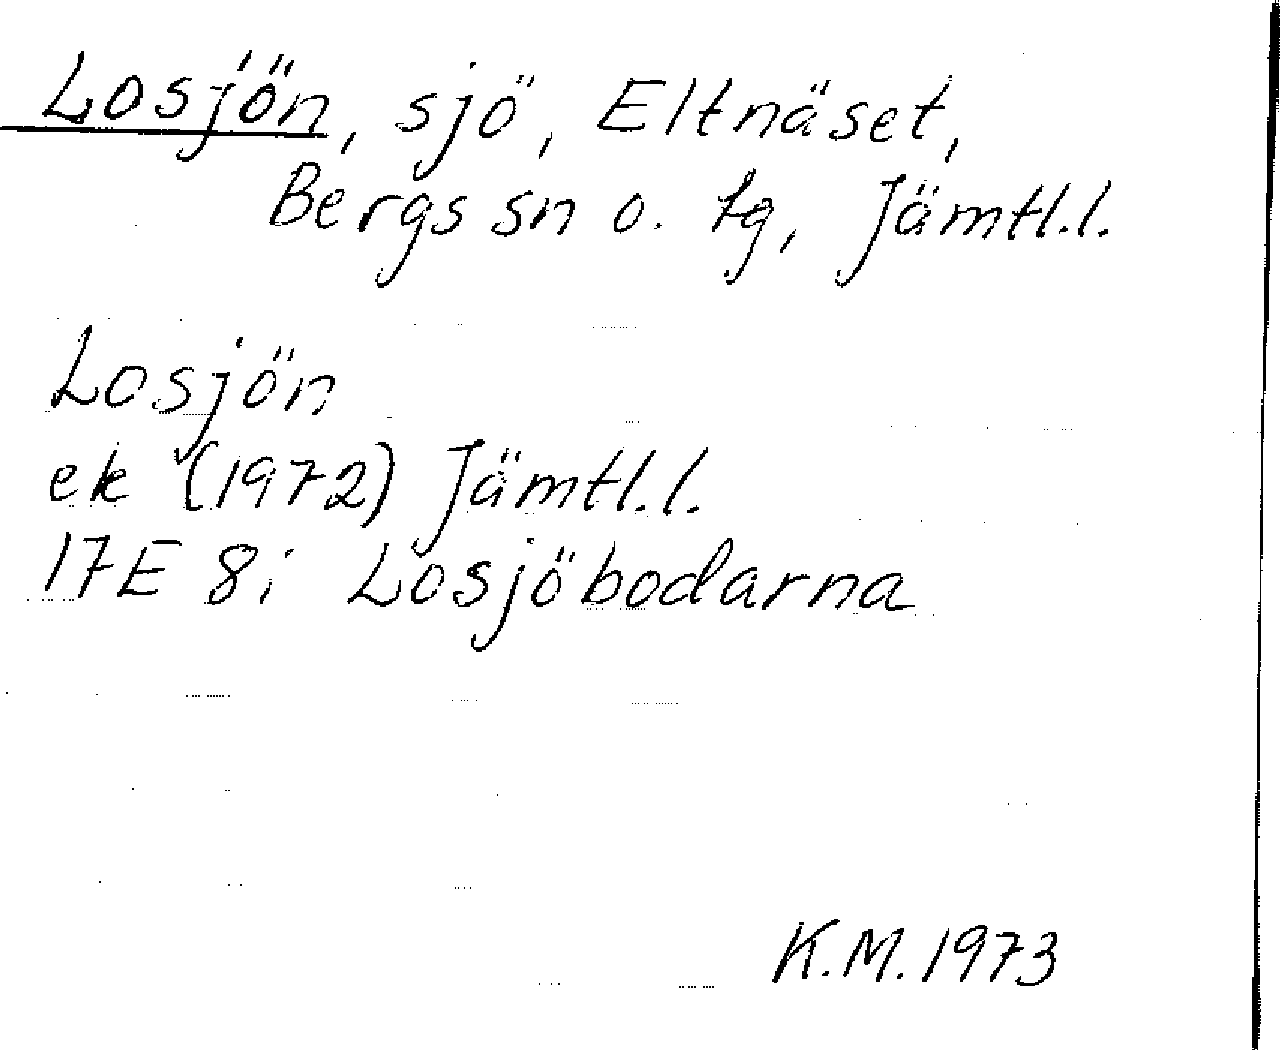 Losjön, sjö, Eltnäset,
Bergs sn o. tg, Jämtl.l.
Losjön
ek (1972) Jämtl.l.
17E 8i Losjöbodarna
K.M. 1973